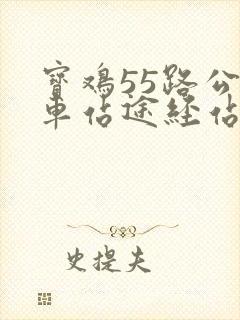 寶鸡55路公
車站途経站
史提夫